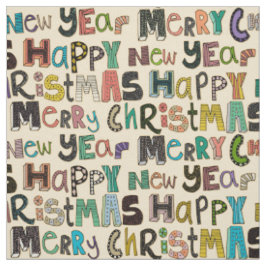 NEW YEAR MERRY CH
S HAPPY NEW YEAR
CHRISTMAS HAPPY
MERRY CHRISTMAS
NEW YEAR MERRY CH
S HAPPY NEW YEAR
CHRISTMAS HAPPY
MERRY CHRISTMAS